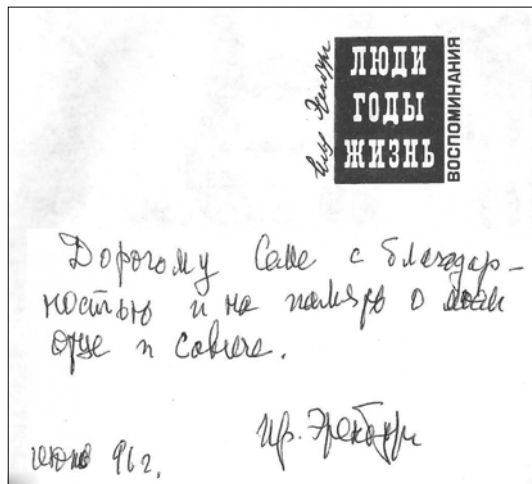 ЛЮДИ
ГОДЫ
ЖИЗНЬ
ВОСПОМИНАНИЯ
Дорогому с благодар-
ностью и на память о моем
отце и Савиче.
Ир. Эренбург
июнь 96 г.